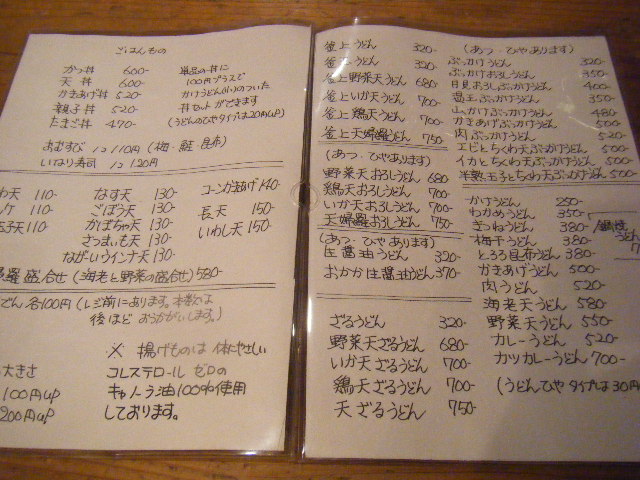 ごはんもの
かつ丼 600-
天丼 600-
かきあげ丼 520-
親子丼 520-
たまご丼 470-
単品の丼に
100円プラスで
かけうどん(小)のついた
丼セットができます
(うどんのひやタイプは20円UP)
おむすび 1コ 110円 (梅・鮭・昆布)
いなり寿司 1コ 120円
わ天 110-
110-
玉子天 110-
なす天 130-
ごぼう天 130-
かぼちゃ天 130-
さつまいも天 130-
ながいウインナ天 130-
コーンかきあげ 140-
長天 150-
いわし天 150-
盛合せ (海老と野菜の盛合せ) 580-
でん 各100円 (レジ前にあります。本数は
後ほど おうかがいします。)
大きさ
100円UP
200円UP
※ 揚げものは 体にやさしい
コレステロール ゼロの
キャノーラ油100%使用
しております。
釜上うどん 320-
320-
釜上野菜天うどん 680
釜上いか天うどん 700-
釜上鶏天うどん 700-
釜上天婦羅うどん 750-
(あつ・ひやあります)
野菜天おろしうどん 680
鶏天おろしうどん 700
いか天おろしうどん 700-
天婦羅おろしうどん 750-
(あつ・ひやあります)
生醤油うどん 320
おかか生醤油うどん 370-
ざるうどん 320-
野菜天ざるうどん 680-
いか天ざるうどん 700-
鶏天ざるうどん 700-
天ざるうどん 750-
(あつ・ひやあります)
ぶっかけうどん 320-
ぶっかけおろしうどん 350-
月見おろしぶっかけうどん 400-
温玉ぶっかけうどん 350-
山かけぶっかけうどん 480-
かきあげぶっかけうどん 500-
肉ぶっかけうどん 520-
エビとちくわ天ぶっかけうどん 500-
イカとちくわ天ぶっかけうどん 500-
半熟玉子とちくわ天ぶっかけうどん 500
かけうどん 250-
わかめうどん 350-
きつねうどん 380-
梅干うどん 380-
とろろ昆布うどん 380-
かきあげうどん 500-
肉うどん 520-
海老天うどん 580-
野菜天うどん 550-
カレーうどん 520-
カツカレーうどん 700-
(うどんひやタイプは30円
鍋焼
うどん